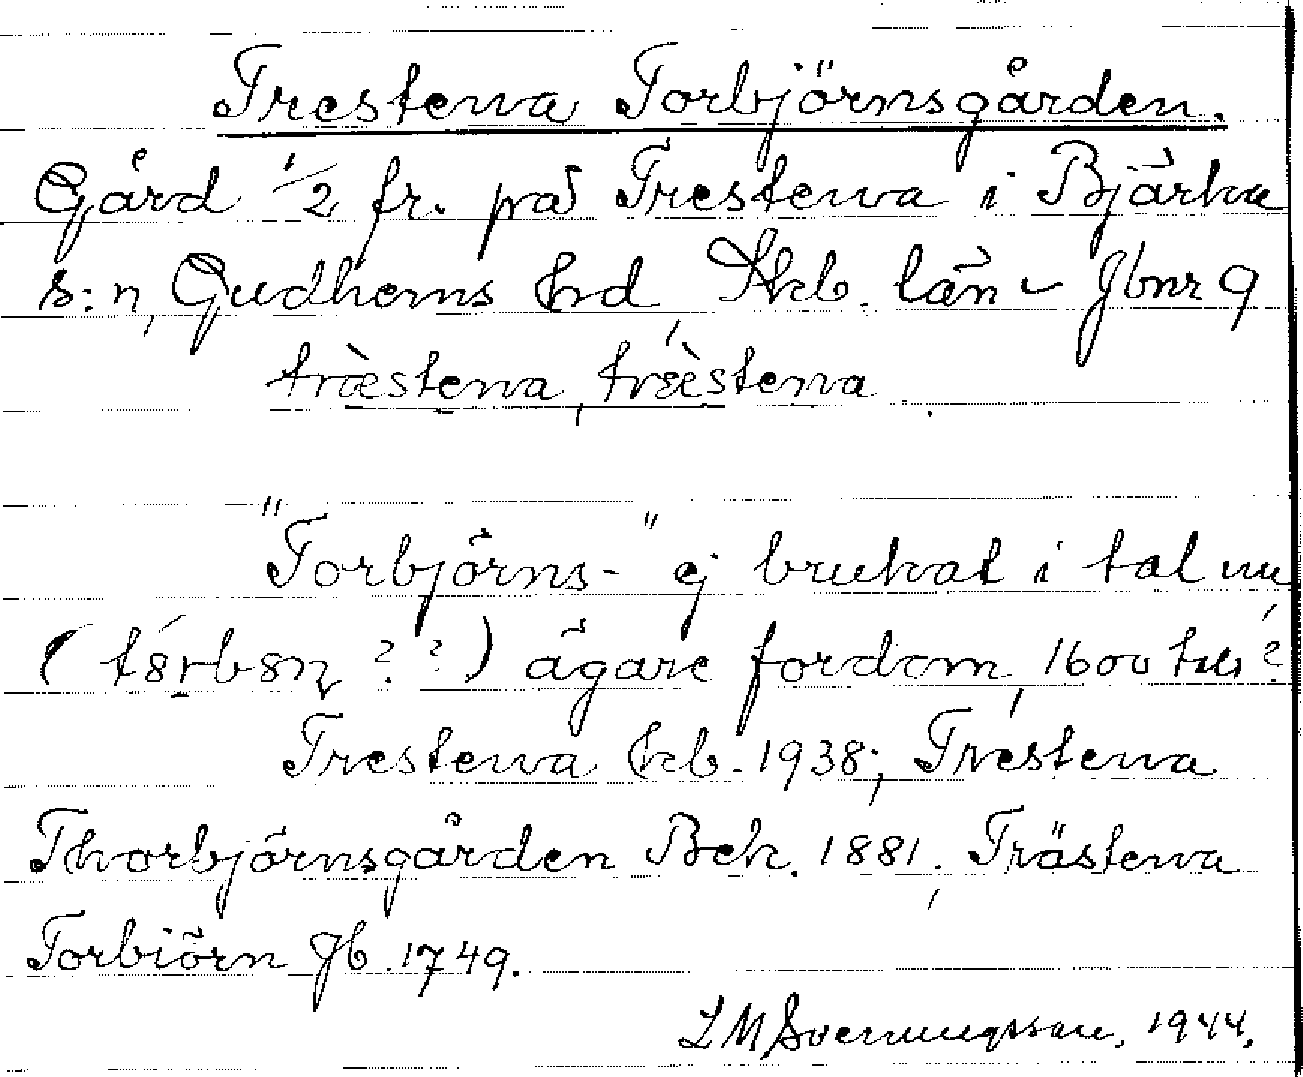 Trestena Torbjörnsgården.
Gård 1/2 fr. på Trestena i Bjärka
s:n, Gudhems hd, Skb. län - Jbnr 9
træ̀stena, trɛ̀stena

"Torbjörns-" ej brukat i tal nu
(tɞ́rbɞn ??) ägare fordom, 1600 tal?
Trestena hcb. 1938; Trestena
Thorbjörnsgården Bek. 1881; Trästena
Torbiörn Jb. 1749.
L M Svenungsson, 1944.